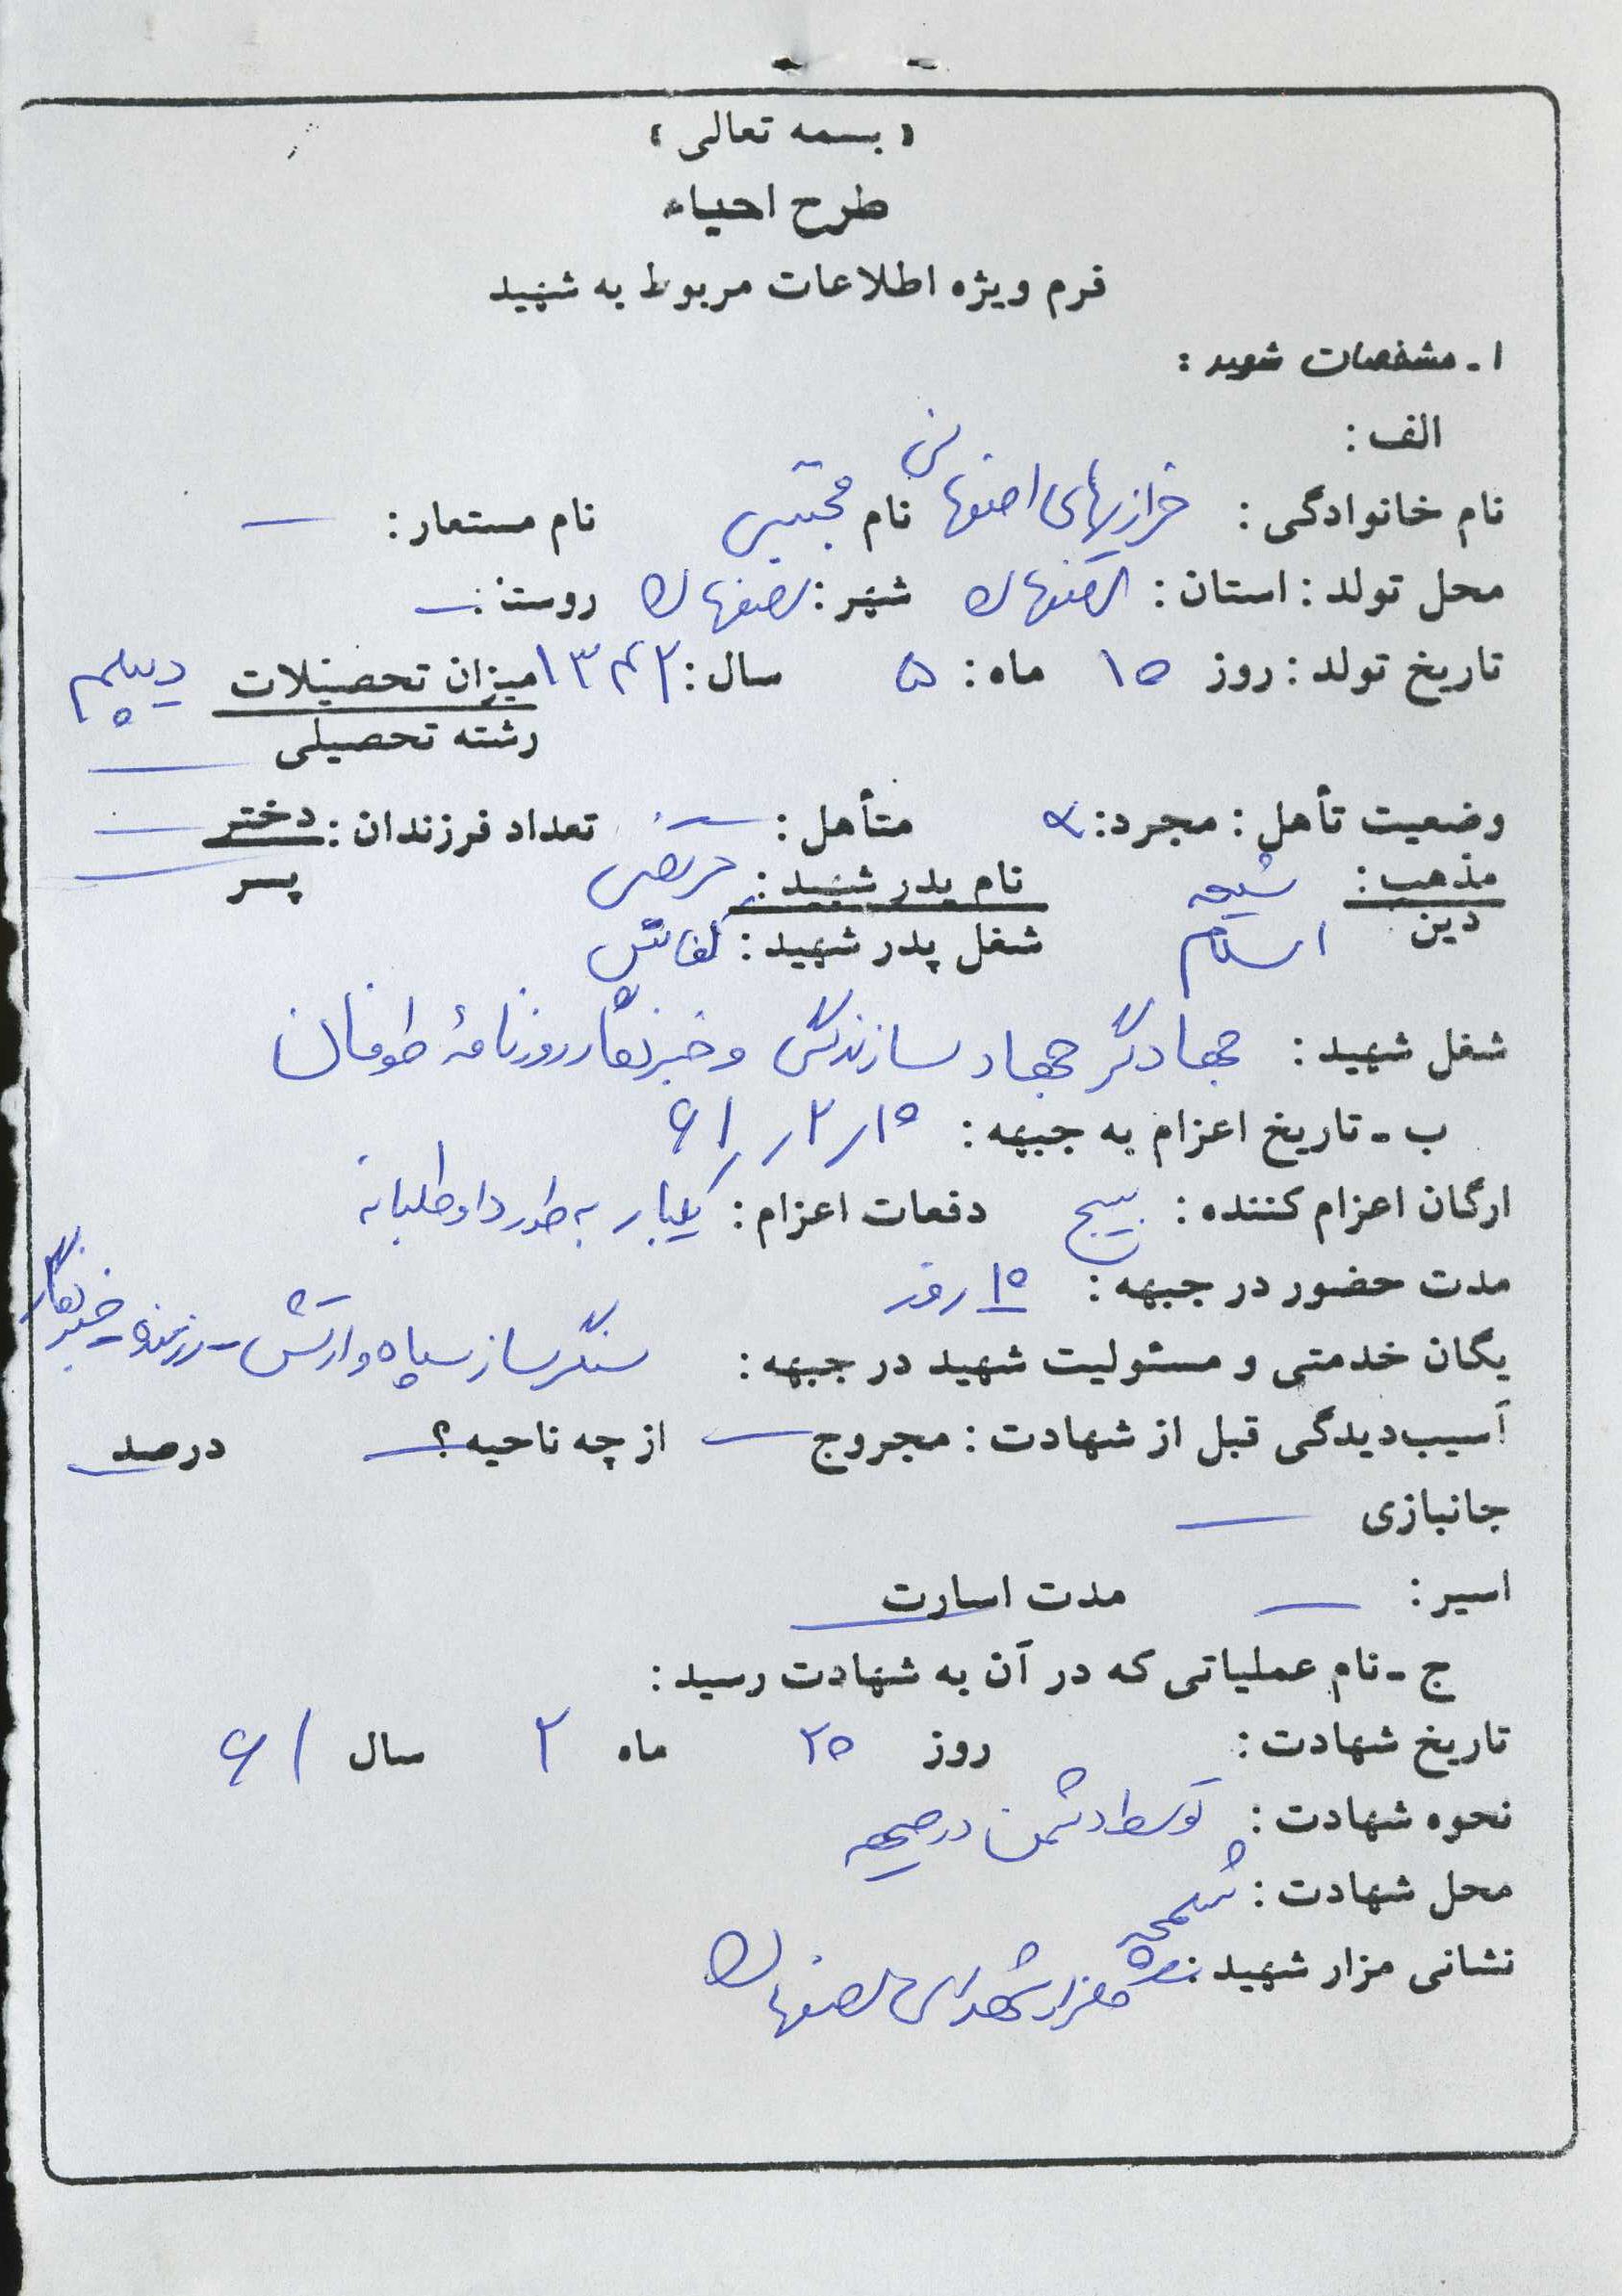 « بسمه تعالی »
طرح احیاء
فرم ویژه اطلاعات مربوط به شهید
۱ - مشخصات شهید :
الف :
نام خانوادگی : خرازیهای اصفهانی نام مجتبی نام مستعار : —
محل تولد : استان : اصفهان شهر : اصفهان روستا : —
تاریخ تولد : روز ۱۵ ماه : ۵ سال : ۱۳۴۲ میزان تحصیلات دیپلم
رشته تحصیلی —
وضعیت تأهل : مجرد : متأهل : — تعداد فرزندان : دختر —
پسر —
مذهب : شیعه نام پدر شهید : مرتضی
دین اسلام شغل پدر شهید : کفاش
شغل شهید : جهادگر جهاد سازندگی و خبرنگار روزنامهٔ طوفان
ب - تاریخ اعزام به جبهه : ۱۵ / ۲ / ۶۱
ارگان اعزام کننده : بسیج دفعات اعزام : یکبار به طور داوطلبانه
مدت حضور در جبهه : ۱۵ روز
یگان خدمتی و مسئولیت شهید در جبهه : سنگرساز سپاه و ارتش - رزمنده - خبرنگار
آسیب‌دیدگی قبل از شهادت : مجروح — از چه ناحیه ؟ — درصد —
جانبازی —
اسیر : — مدت اسارت —
ج - نام عملیاتی که در آن به شهادت رسید :
تاریخ شهادت : روز ۲۵ ماه ۲ سال ۶۱
نحوه شهادت : توسط دشمن در جبهه
محل شهادت : شلمچه
نشانی مزار شهید : مزار شهدای اصفهان